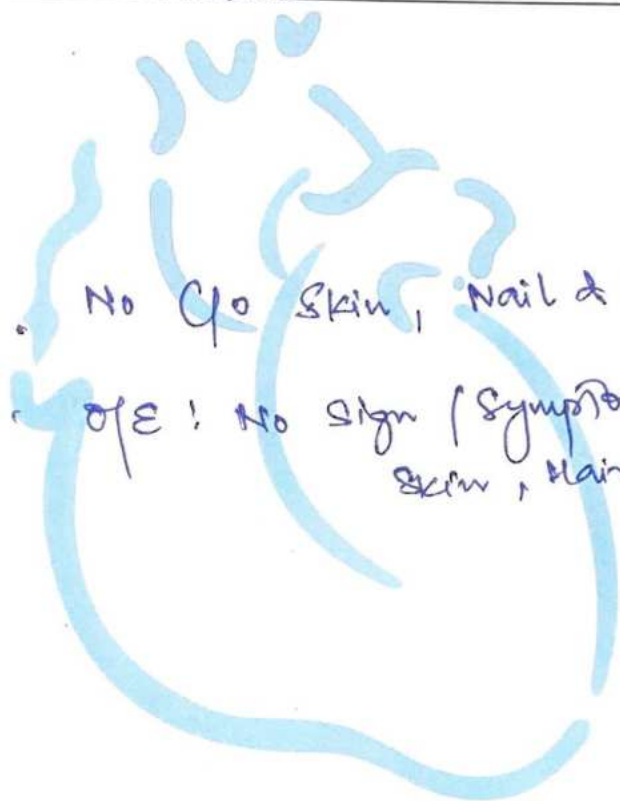 . No C/o Skin, Nail &
. O/E : No Sign / Sympto
Skin, Hair